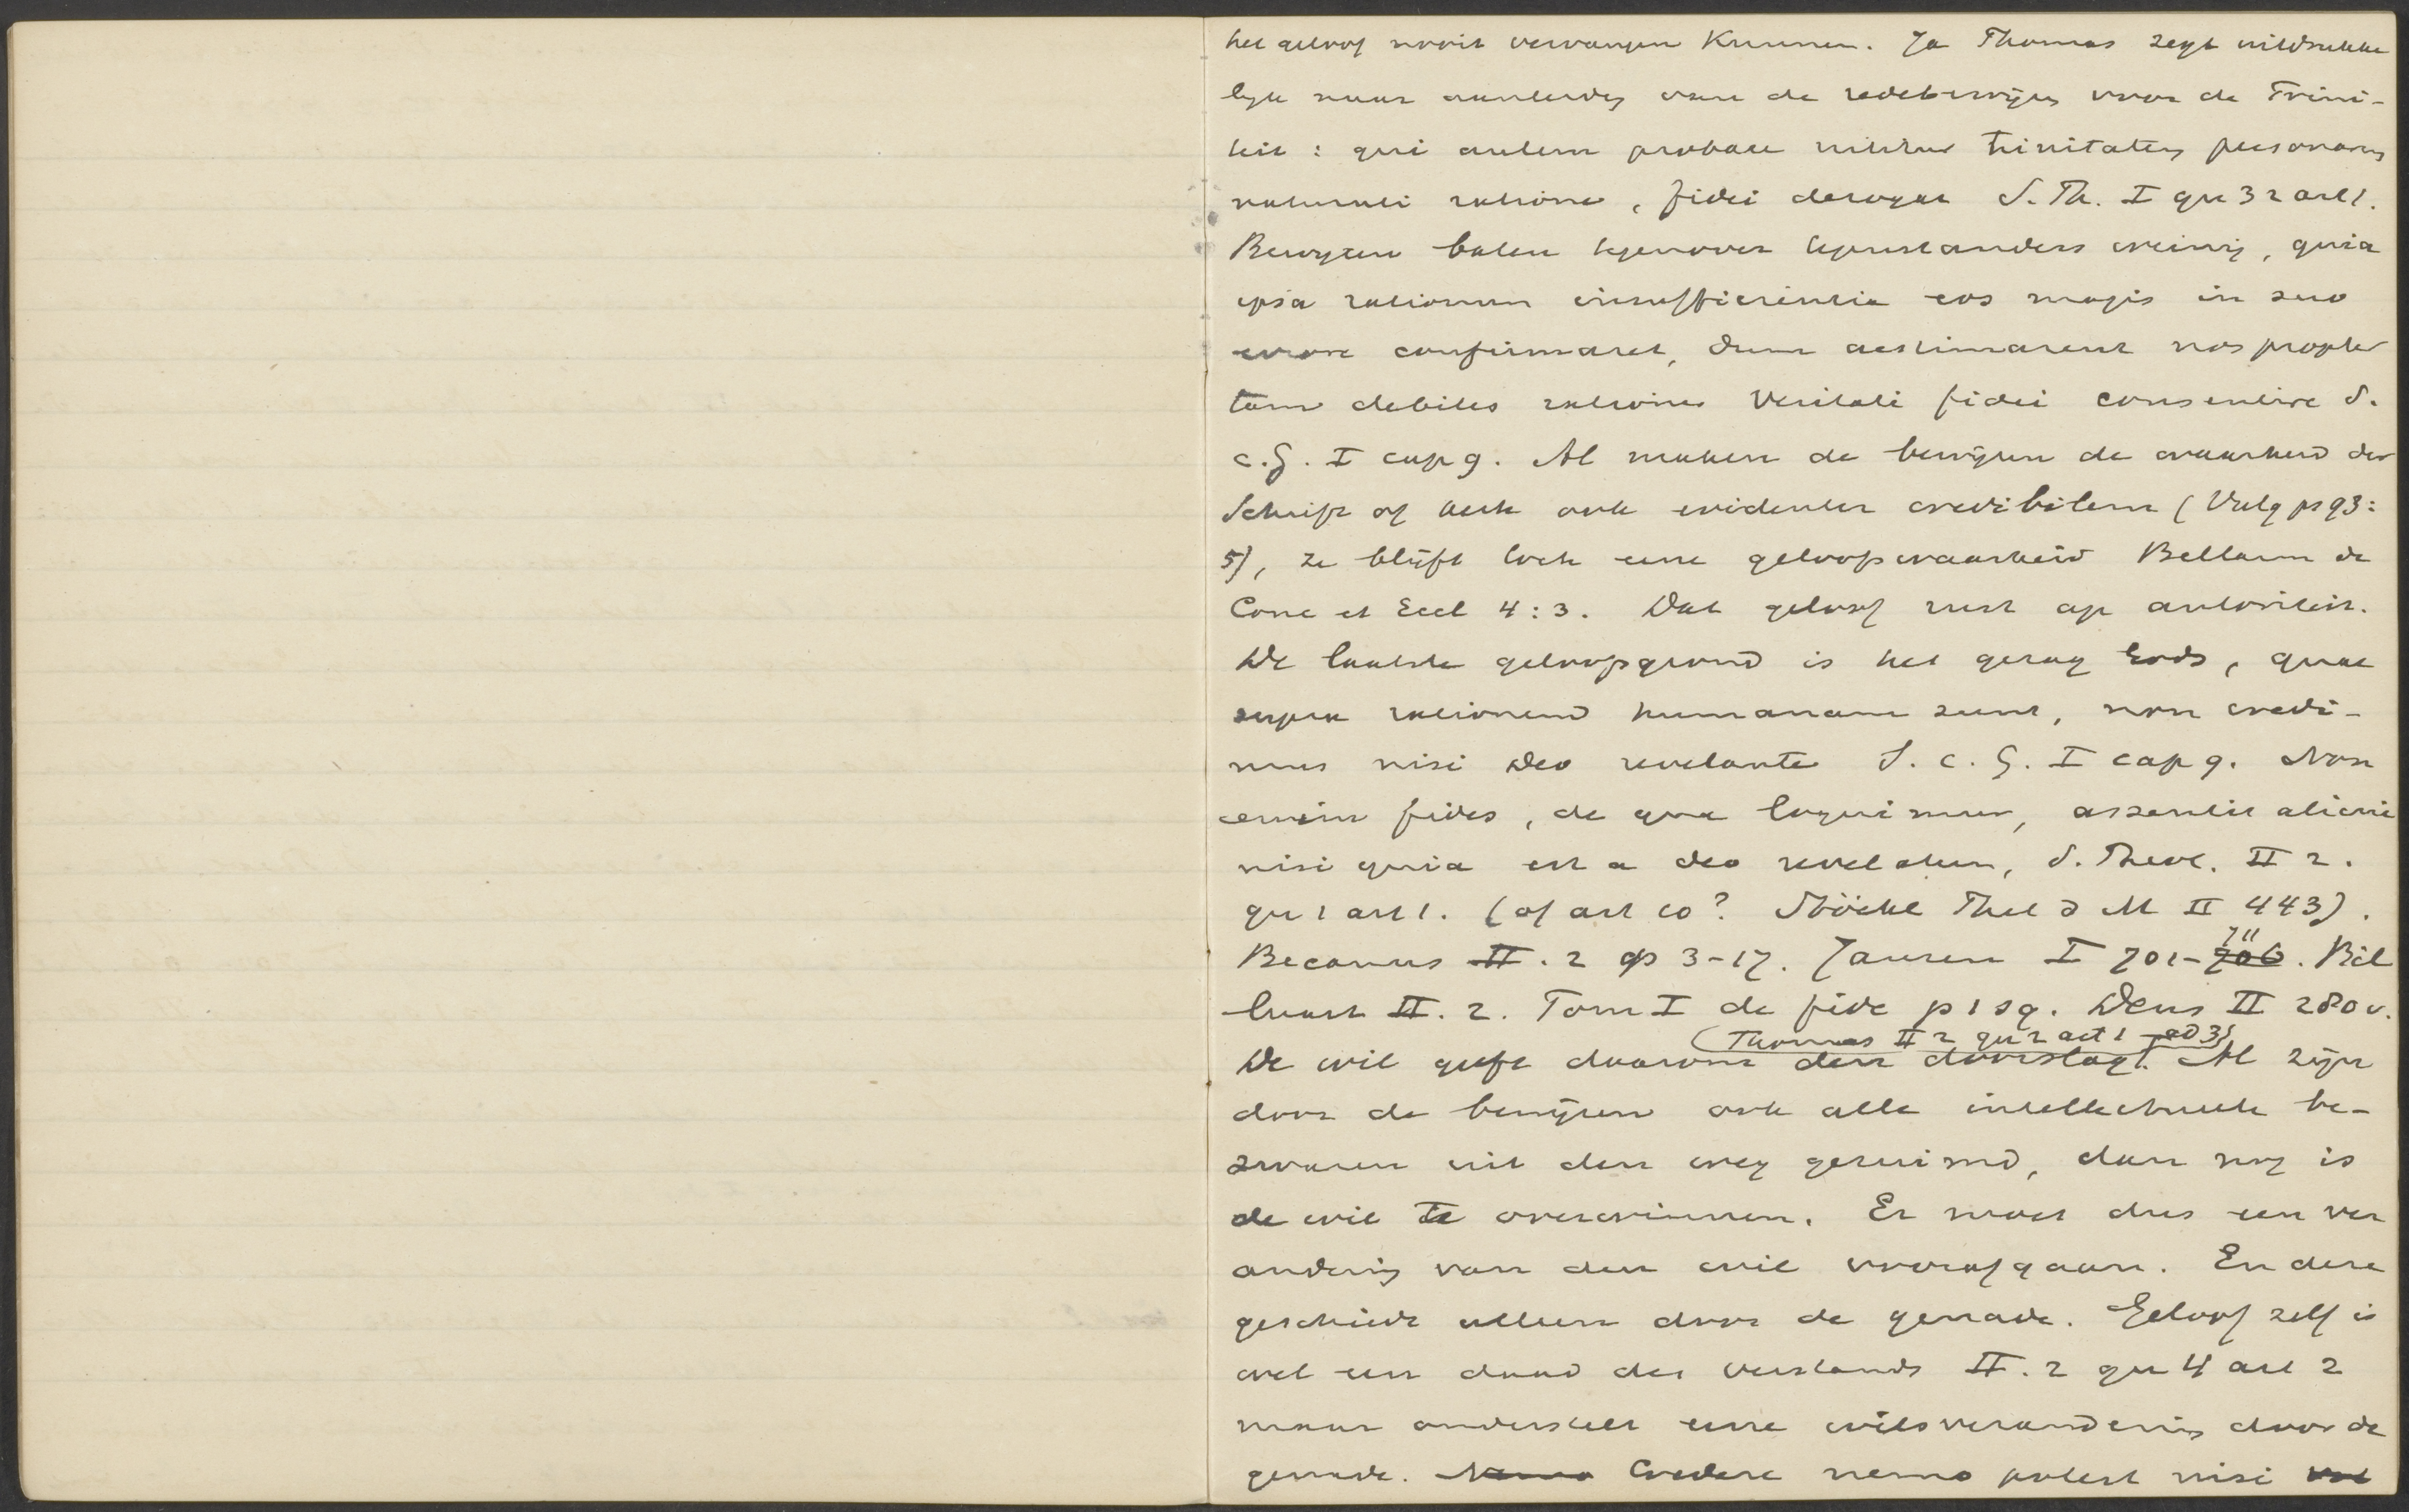 het geloof nooit vervangen kunnen. Ja Thomas zegt uitdrukke
lijk naar aanleidg van de redebewijzen voor de Trini-
teit : qui autem probare nititur trinitatem personarum
naturali ratione, fidei derogat S. Th. I qu 32 art 1.
Bewijzen baten tegenover tegenstanders weinig, quia
ipsa rationum insufficientia eos magis in suo
errore confirmaret, dum aestimarent nos propter
tam debiles rationes veritati fidei consentire S.
c. G. I cap 9. Al maken de bewijzen de waarheid der
Schrift of kerk ook evidenter credibilem (Vulg ps 93:
5), ze blijft toch eene geloofswaarheid Bellarm de
Conc et Eccl 4:3. Dat geloof rust op autoriteit.
De laatste geloofsgrond is het gezag Gods, quae
supra rationem humanam sunt, non credi-
mus nisi Deo revelante S. c. G. I cap 9. Non
enim fides, de qua loquimur, assentit alicui
nisi quia est a deo revelatum, S. Theol. II 2.
qu 1 art 1. (of art 10? Stöckl Phil d M II 443).
Becanus II. 2 p 3-17. Jansen I 701-~~706~~ 711. Bil
luart II. 2. Tom I de fide p 1 sq. Dens II 280 v.
De wil geeft daarom den doorslag (Thomas II 2 qu 2 art 1 ad 3). Al zijn
door de bewijzen ook alle intellectueele be-
zwaren uit den weg geruimd, dan nog is
de wil te overwinnen. Er moet dus een ver
andering van den wil voorafgaan. En deze
geschiedt alleen door de genade. Geloof zelf is
wel een daad des verstands II. 2 qu 4 art 2
maar onderstelt eene wilsverandering door de
genade. ~~Nemo~~ Credere nemo potest nisi ~~vol~~